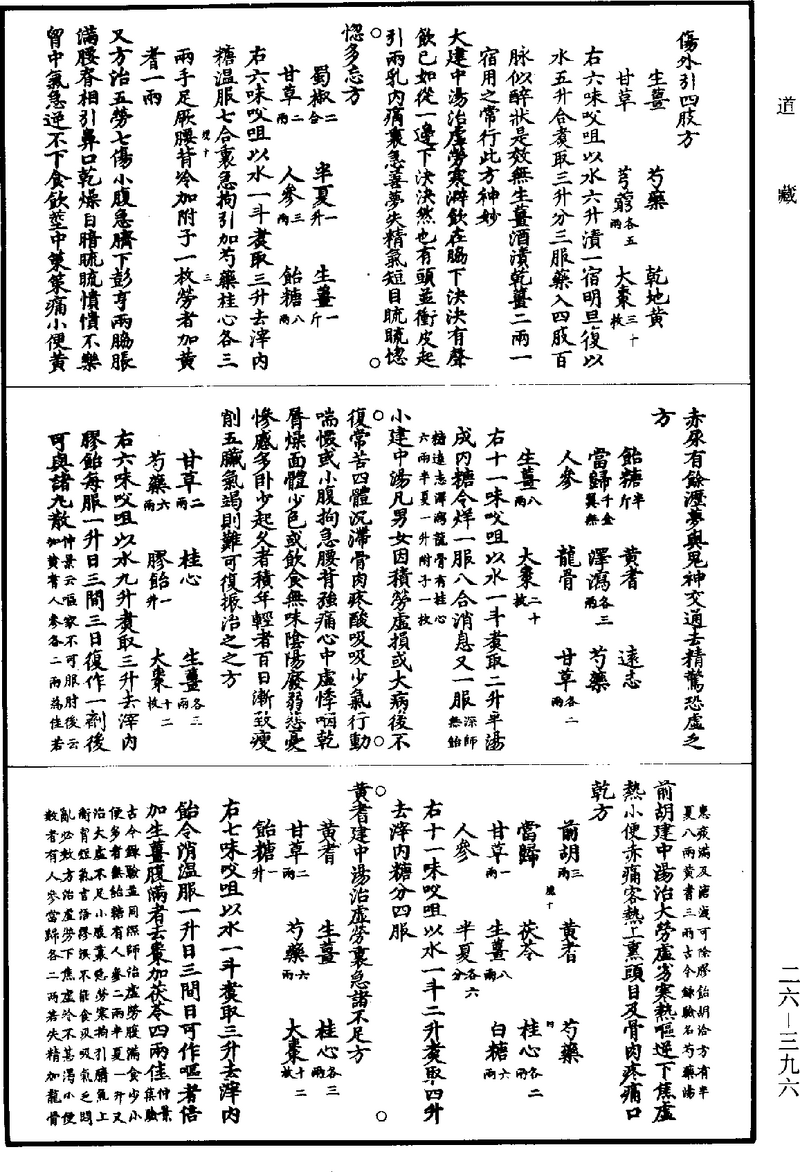 道藏
傷外引四肢方
生薑 芍藥 乾地黃
甘草 芎藭各五兩 大棗三十枚
右六味㕮咀以水六升漬一宿明旦復以
水五升合煑取三升分三服藥入四肢百
脉似醉狀是效無生薑酒漬乾薑二兩一
宿用之常行此方神妙
大建中湯治虛勞寒澼飲在脇下決決有聲
飲已如從一邊下決決然也有頭並衝皮起
引兩乳內痛裏急善夢失精氣短目䀮䀮惚
惚多忘方
蜀椒二合 半夏一升 生薑一斤
甘草二兩 人參三兩 飴糖八兩
右六味㕮咀以水一斗煑取三升去滓內
糖溫服七合裏急拘引加芍藥桂心各三
兩手足厥腰背冷加附子一枚勞者加黃
耆一兩
又方治五勞七傷小腹急臍下彭亨兩脇脹
滿腰脊相引鼻口乾燥目暗䀮䀮憒憒不樂
胷中氣急逆不下食飲莖中策策痛小便黃
赤尿有餘瀝夢與鬼神交通去精驚恐虛乏
方
飴糖半斤 黃耆 遠志
當歸千金翼無 澤瀉各三兩 芍藥
人參 龍骨 甘草各二兩
生薑八兩 大棗二十枚
右十一味㕮咀以水一斗煑取二升半湯
成內糖令烊一服八合消息又一服深師無飴
糖遠志澤瀉龍骨有桂心
六兩半夏一升附子一枚
小建中湯凡男女因積勞虛損或大病後不
復常苦四體沉滯骨肉疼酸吸吸少氣行動
喘惙或小腹拘急腰背強痛心中虛悸咽乾
脣燥面體少色或飲食無味陰陽廢弱悲憂
慘慼多卧少起久者積年輕者百日漸致瘦
削五臟氣竭則難可復振治之之方
甘草二兩 桂心 生薑各三兩
芍藥六兩 膠飴一升 大棗十二枚
右六味㕮咀以水九升煑取三升去滓內
膠飴每服一升日三間三日復作一劑後
可與諸丸散仲景云嘔家不可服肘後云
加黃耆人參各二兩為佳若
患痰滿及溏泄可除膠飴胡洽方有半
夏八兩黃耆三兩古今錄驗名芍藥湯
前胡建中湯治大勞虛劣寒熱嘔逆下焦虛
熱小便赤痛客熱上熏頭目及骨肉疼痛口
乾方
前胡三兩 黃耆 芍藥
當歸 茯苓 桂心各二兩
甘草一兩 生薑八兩 白糖六兩
人參 半夏各六分
右十一味㕮咀以水一斗二升煑取四升
去滓內糖分四服
黃耆建中湯治虛勞裏急諸不足方
黃耆 生薑 桂心各三兩
甘草二兩 芍藥六兩 大棗十二枚
飴糖一升
右七味㕮咀以水一斗煑取三升去滓內
飴令消溫服一升日三間日可作嘔者倍
加生薑腹滿者去棗加茯苓四兩佳仲景集驗
古今錄驗並同深師治虛勞腹滿食少小
便多者無飴糖有人參二兩半夏一升又
治大虛不足小腹裏急勞寒拘引臍氣上
衝胷短氣言語謬誤不能食吸吸氣乏悶
亂必效方治虛勞下焦虛冷不甚渴小便
數者有人參當歸各二兩若失精加龍骨
二六—三九六